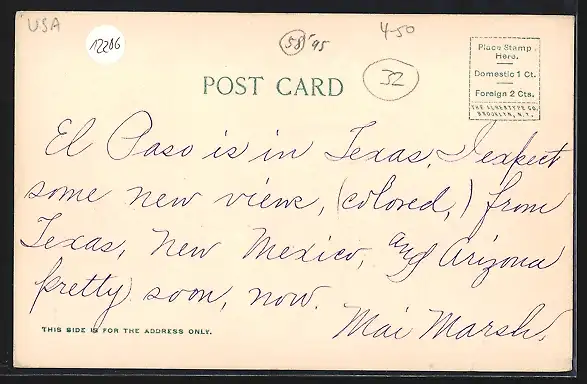 USA
12206
58 95
4-50
32
POST CARD
Place Stamp
Here.
Domestic 1 Ct.
Foreign 2 Cts.
THE ALBERTYPE CO.
BROOKLYN, N.Y.
El Paso is in Texas. I expect
some new views, (colored,) from
Texas, New Mexico, and Arizona
pretty soon, now.
Mai Marsh.
THIS SIDE IS FOR THE ADDRESS ONLY.